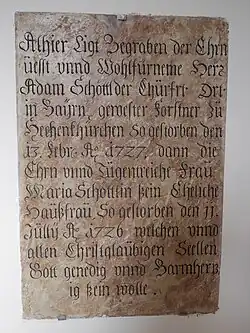 Alhier Ligt Begraben der Ehrn
uesst vnnd Wohlfürneme Herr
Adam Schöttl der Chürfrt Drt
in Bayrn, gewester Forstner zu
Hechenkhürchen So gestorben den
13. Febr. Aō. 1727. dann die
Ehrn vnnd Tugentreiche Frau
Maria Schöttlin sein Eheliche
Haußfrau So gestorben den 11.
Július Aō 1726 welchen vnnd
allen Christglaubigen Seellen
Gott genedig vnnd Barmherz
ig sein wolle.